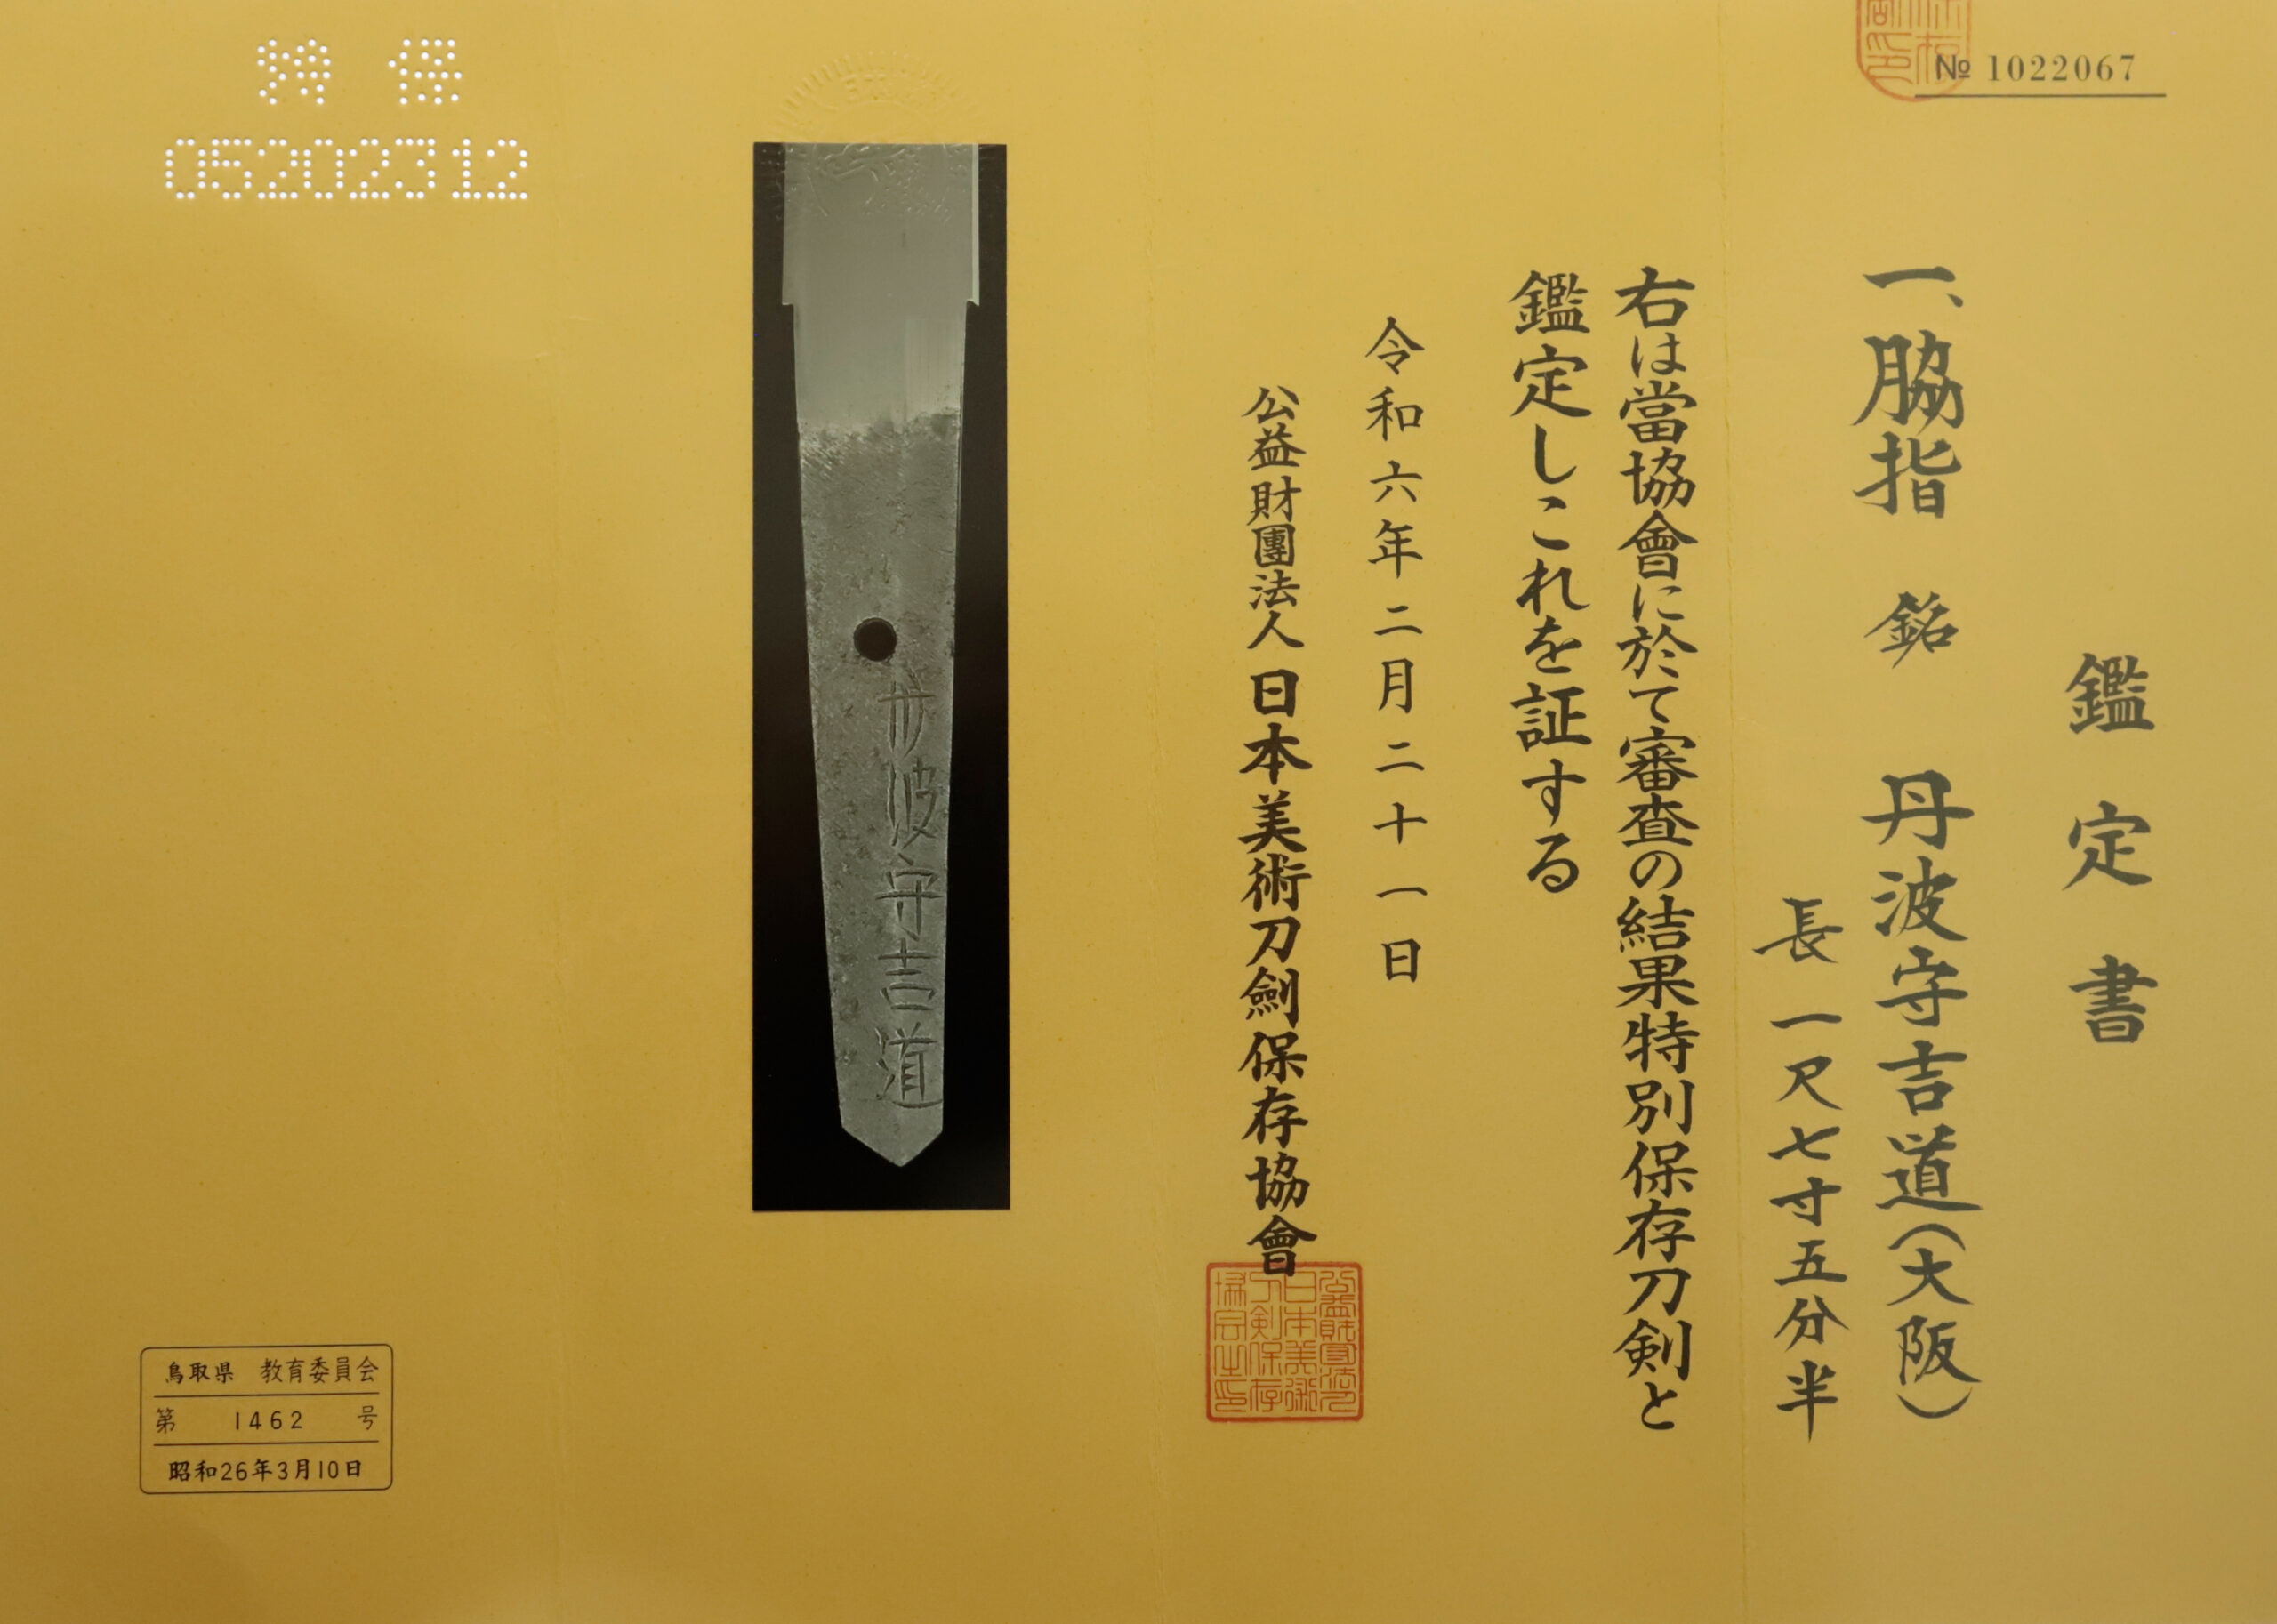 № 1022067
鑑定書
一、脇指 銘 丹波守吉道(大阪)
長 一尺七寸五分半
右は當協會に於て審査の結果特別保存刀剣と
鑑定しこれを証する
令和六年二月二十一日
公益財團法人 日本美術刀劍保存協會
丹波守吉道
特 保
05202312
鳥取県 教育委員会
第 1462 号
昭和26年3月10日